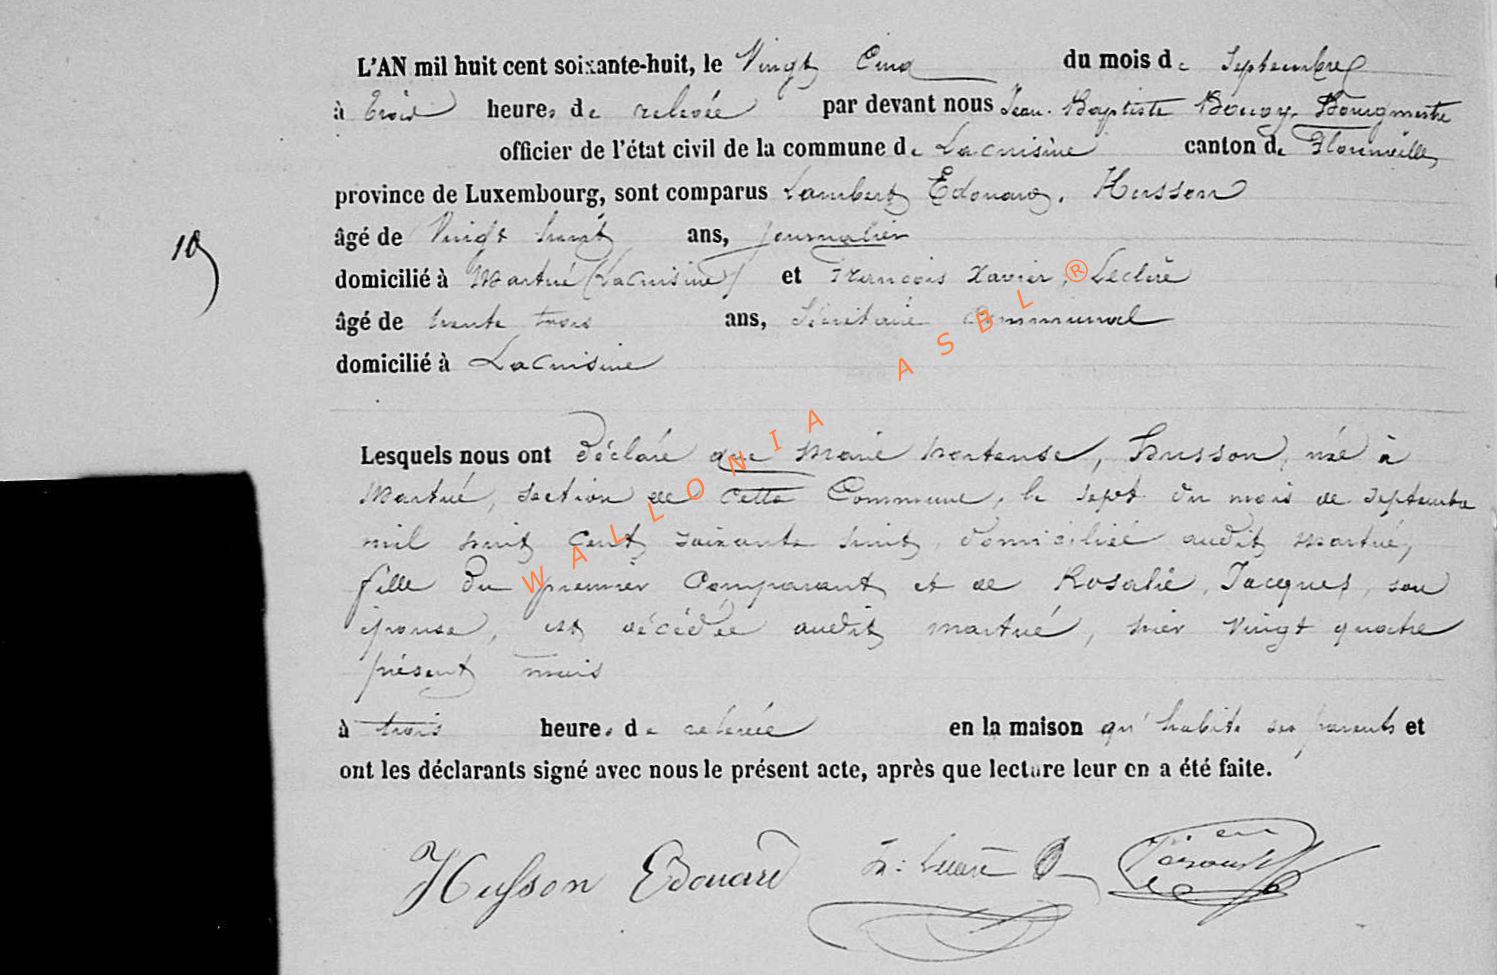 L'AN mil huit cent soixante-huit, le Vingt Cinq du mois de Septembre
à Trois heures de relevée par devant nous Jean-Baptiste Bourgmestre
officier de l'état civil de la commune de Lacuisine canton de Florenville,
province de Luxembourg, sont comparus Lambert Edouard, Husson
âgé de Vingt huit ans, journalier
19
domicilié à Martué (Lacuisine) et François Xavier, Leclère
âgé de trente trois ans, Secrétaire Communal
domicilié à Lacuisine
Lesquels nous ont déclaré que Marie Hortense, Husson, née à
Martué, section de cette Commune, le sept du mois de Septembre
mil huit cent soixante huit, domiciliée audit Martué,
fille du premier Comparant et de Rosalie, Jacques, son
épouse, est décédée audit Martué, hier vingt quatre
présent mois
à trois heures de relevée en la maison qu'habite ses parents et
ont les déclarants signé avec nous le présent acte, après que lecture leur en a été faite.
Husson Edouard Fr: Leclère
WALLONIA ASBL ®